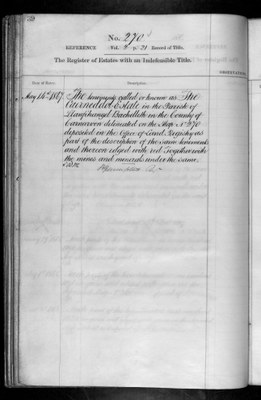 No. 270
REFERENCE Vol. p. 21 Record of Title.
The Register of Estates with an Indefeasible Title.
OBSERVATIONS
Date of Entry.
Description.
May 14th 1867 The hereditaments called or known as The
Estate in the Parish of
Llanfihangel Bachellaeth in the County of
Carnarvon delineated on the Map No. 270
deposited in the Office of Land Registry as
part of the description of the same tenements
and thereon edged with red Together with
the mines and minerals under the same.